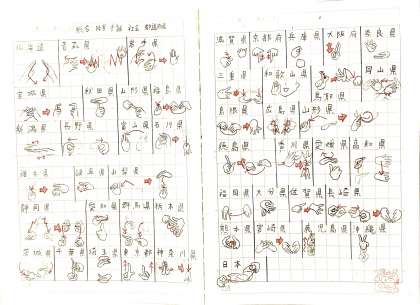 北海道 青森県 岩手県
宮城県 秋田県 山形県 福島県
新潟県 長野県 富山県 石川県
福井県 岐阜県 山梨県
静岡県 愛知県 群馬県 栃木県
茨城県 千葉県 埼玉県 東京都 神奈川県
滋賀県 京都府 兵庫県 大阪府 奈良県
三重県 和歌山県 鳥取県 岡山県
島根県 広島県 山形県
徳島県 香川県 愛媛県 高知県
福岡県 大分県 佐賀県 長崎県
熊本県 宮崎県 鹿児島県 沖縄県
日本